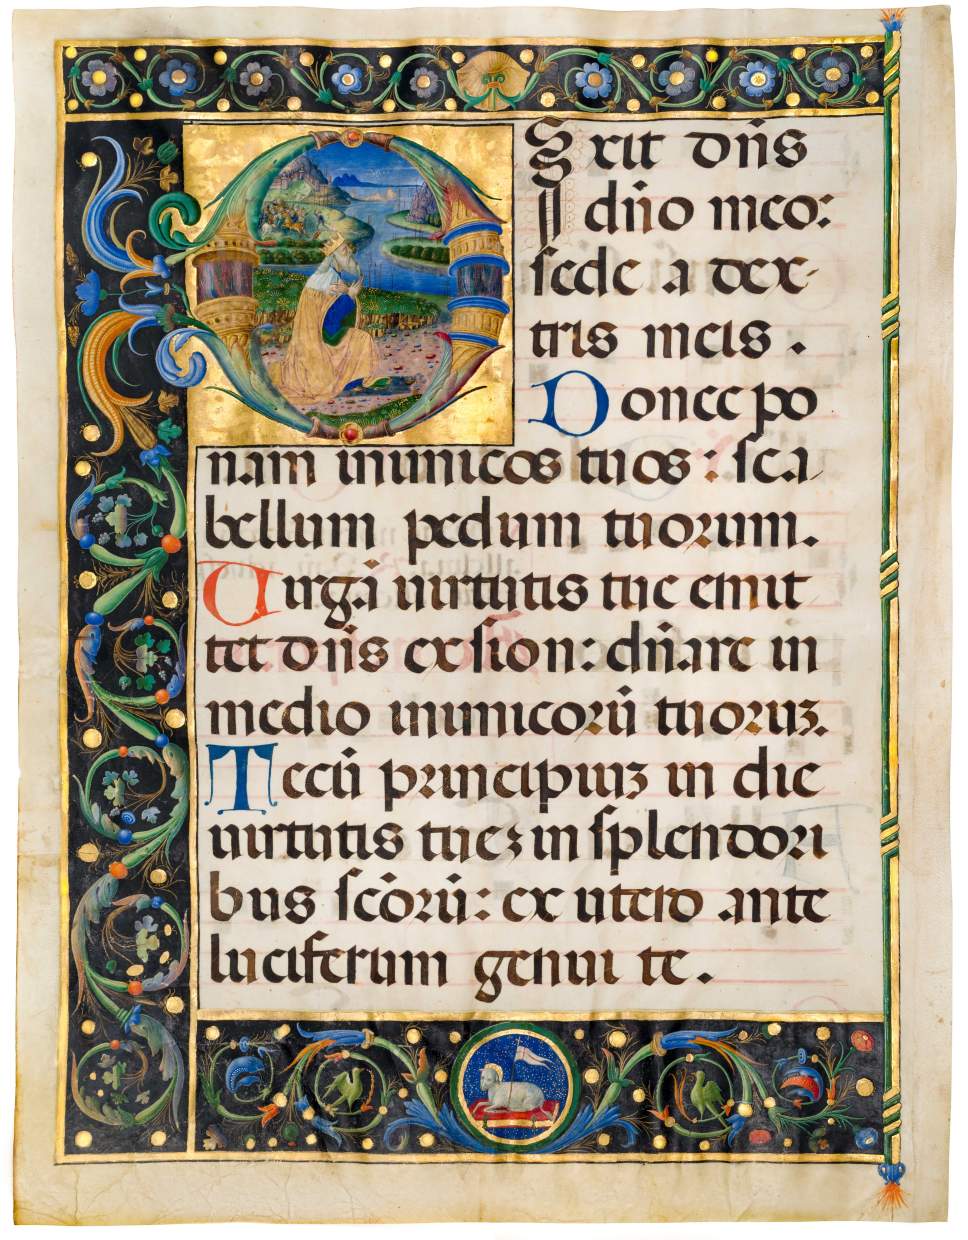 DIxit dñs
dño meo:
sede a dex-
tris meis .
Donec po
nam inimicos tuos : sca
bellum pedum tuorum.
Uirgã uirtutis tue emit
tet dñs ex sion : dñare in
medio inimicorũ tuoruʒ.
Tecũ principiuʒ in die
uirtutis tueʒ in splendori
bus scõrũ : ex utero ante
luciferum genui te .